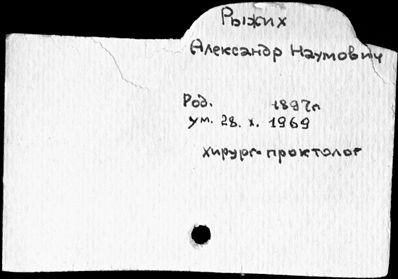 Рыжих
Александр Наумович
Род. 1897г
ум. 28. х. 1969
хирург-проктолог